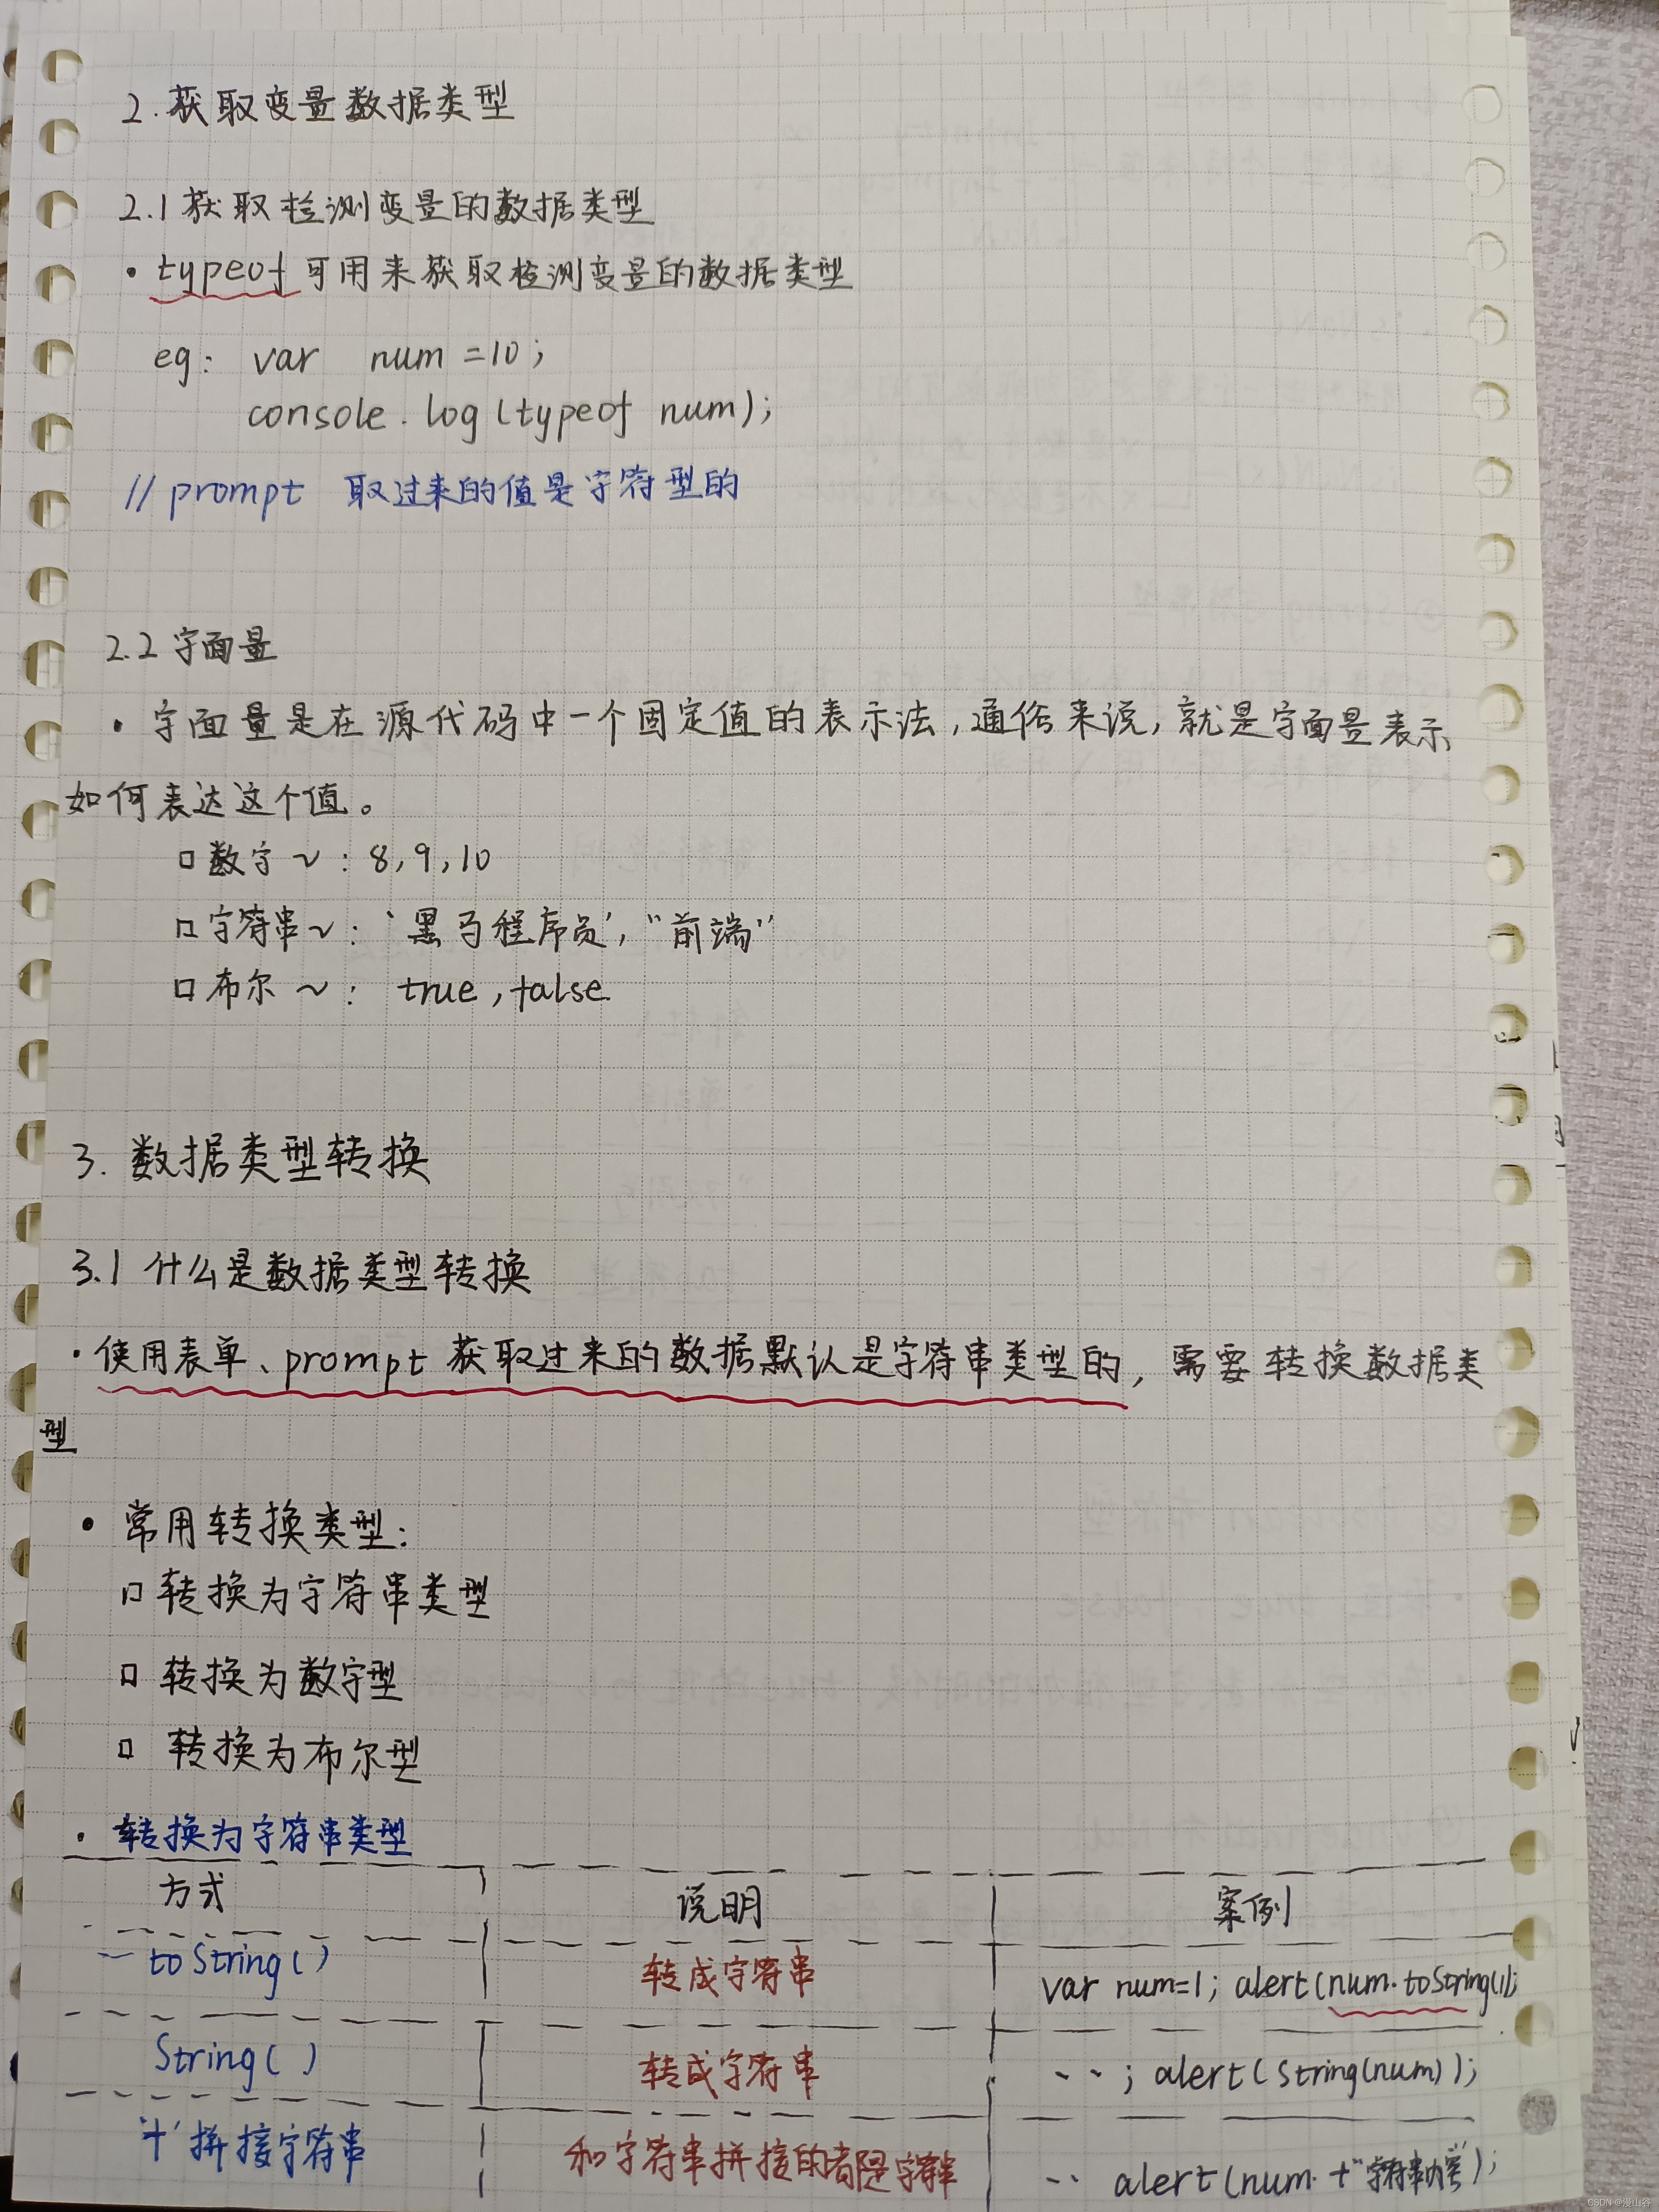 2.获取变量数据类型
2.1 获取检测变量的数据类型
• typeof 可用来获取检测变量的数据类型
eg: var num =10;
console.log(typeof num);
// prompt 取过来的值是字符型的
2.2 字面量
• 字面量是在源代码中一个固定值的表示法,通俗来说,就是字面量表示
如何表达这个值。
□ 数字 ~ : 8,9,10
□ 字符串~: '黑马程序员', "前端"
□ 布尔 ~ : true,false
3. 数据类型转换
3.1 什么是数据类型转换
• 使用表单、prompt 获取过来的数据默认是字符串类型的, 需要转换数据类
型
• 常用转换类型:
□ 转换为字符串类型
□ 转换为数字型
□ 转换为布尔型
• 转换为字符串类型
方式 说明 案例
toString() 转成字符串 var num=1; alert(num.toString());
String( ) 转成字符串 ··; alert(String(num));
'+' 拼接字符串 和字符串拼接的都是字符串 ·· alert(num. +"字符串");
CSDN @漫山谷